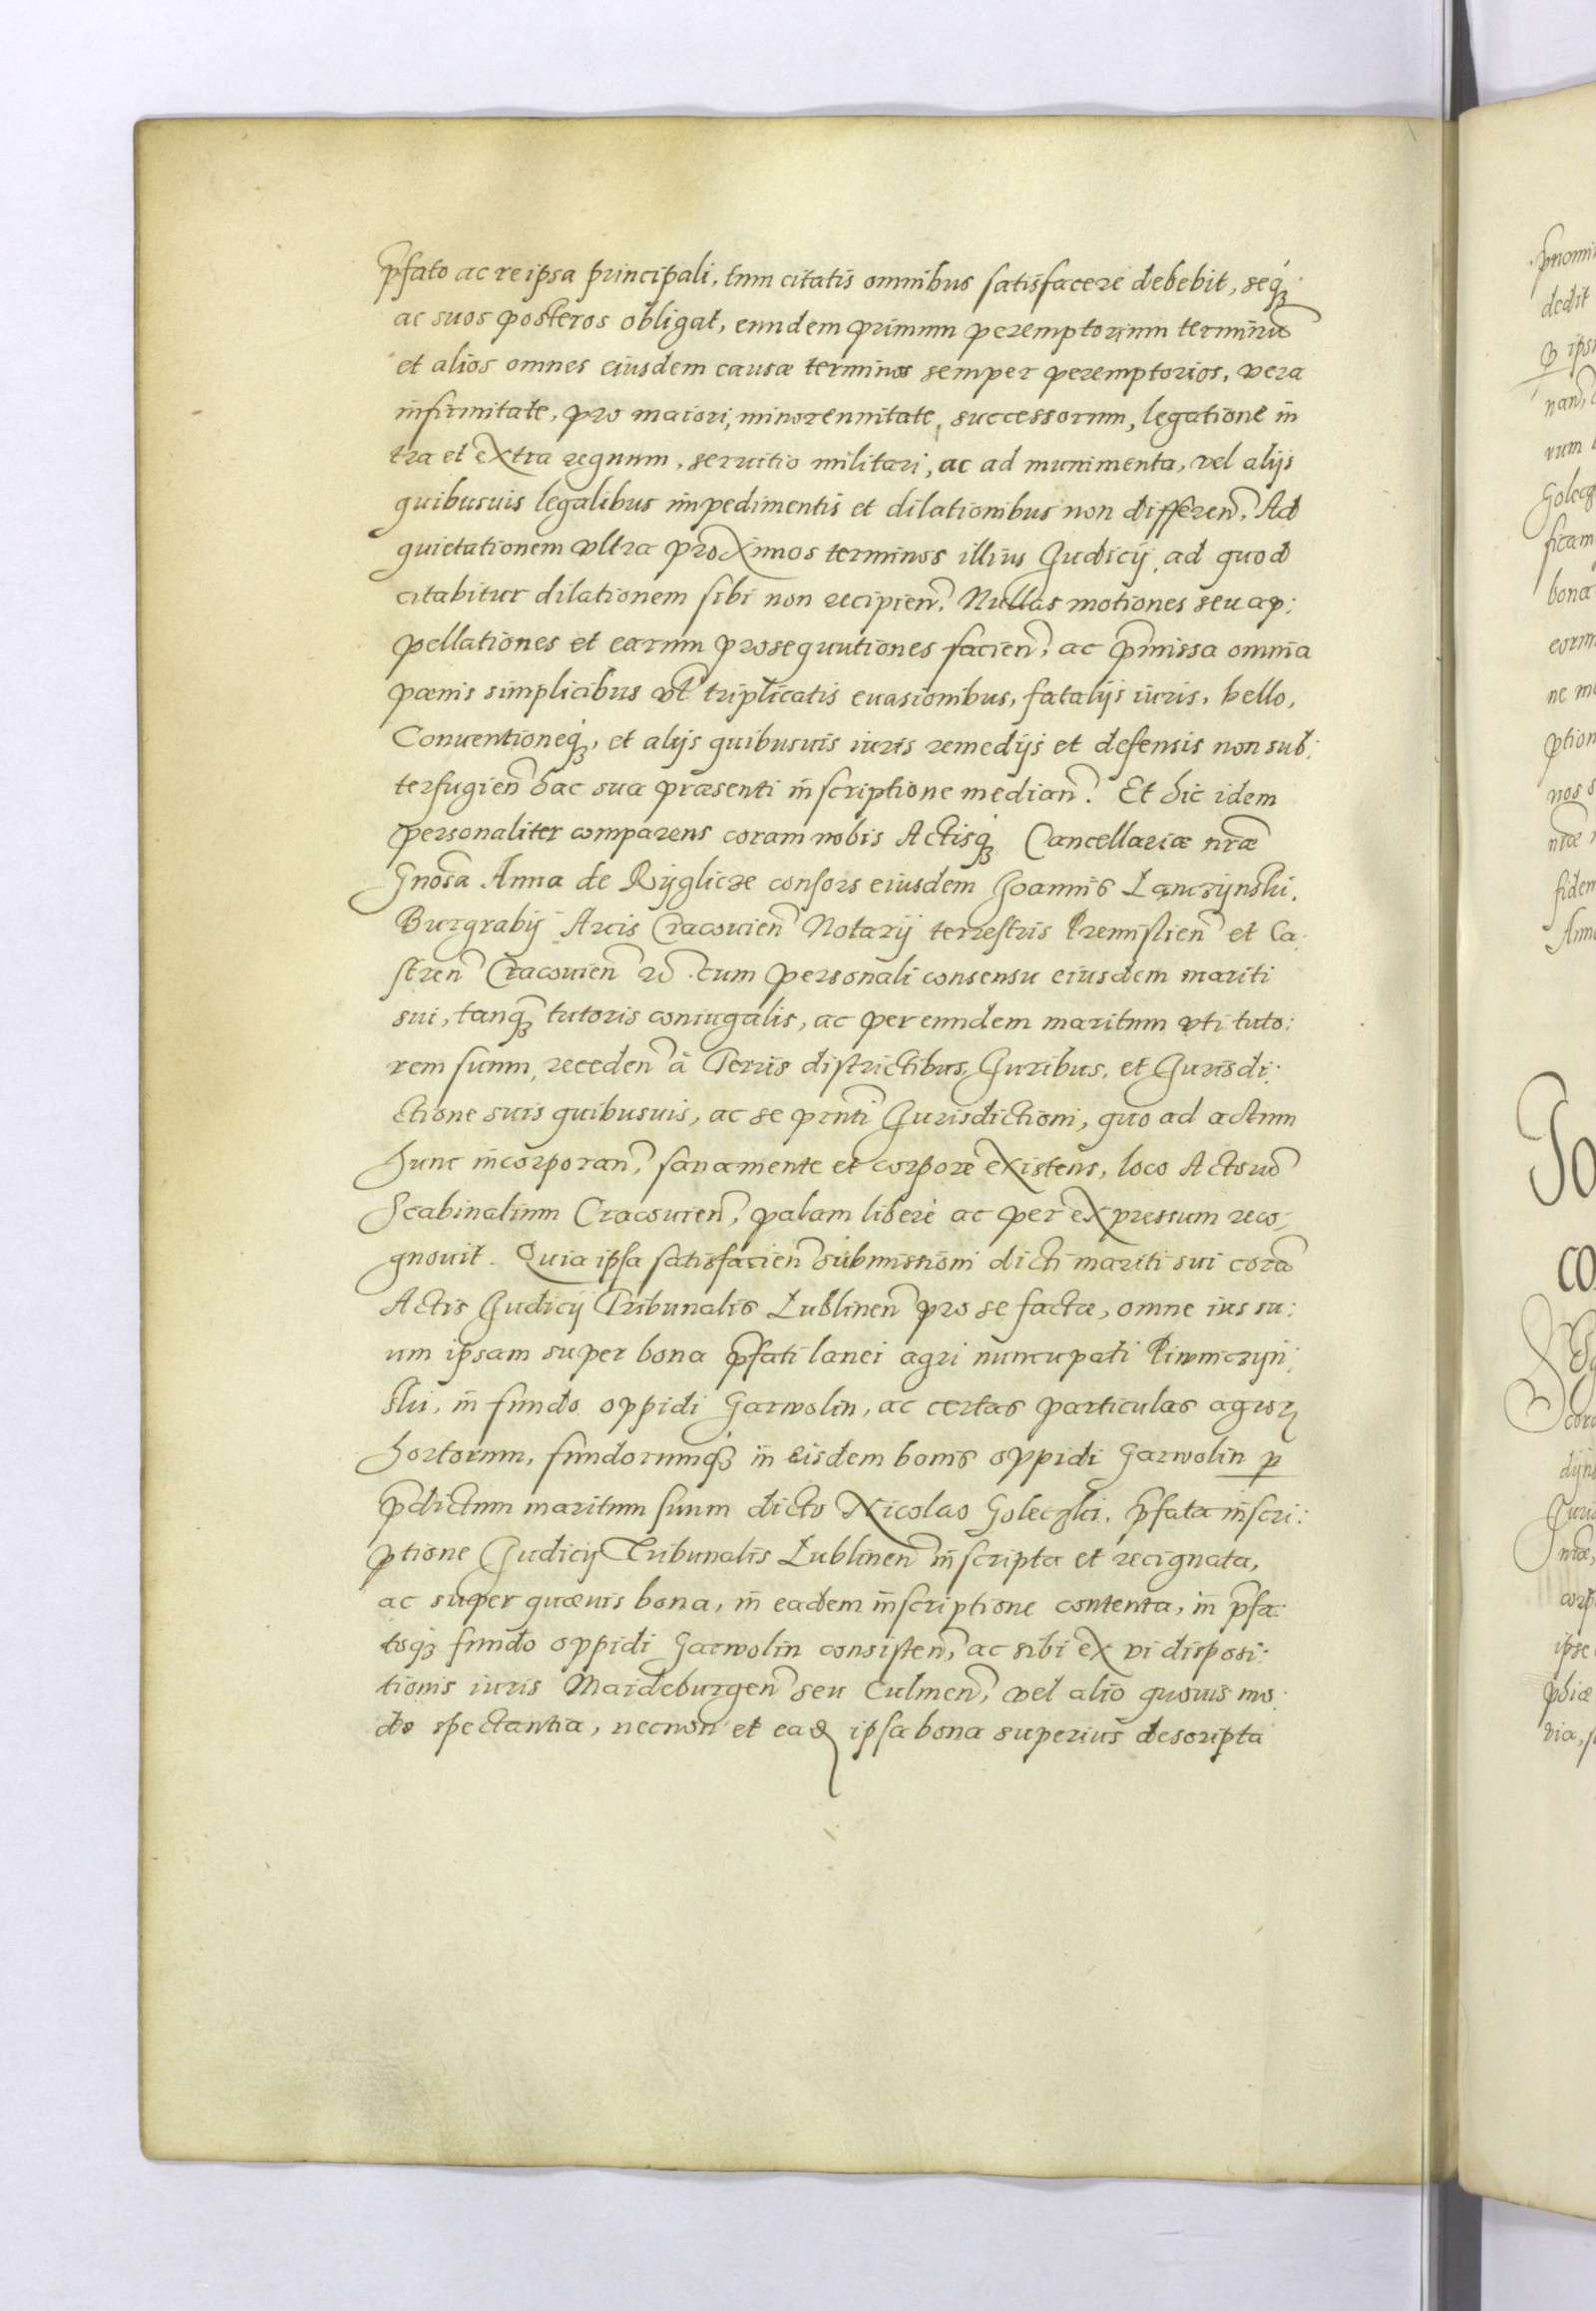 p̄fato ac reipsa principali, tum citatis omnibus satisfacere debebit, seq́ꝫ
ac suos posteros obligat, eundem primum peremptorium terminū
et alios omnes eiusdem causæ terminos semper peremptorios, vera
infirmitate, pro maiori, minorennitate, successorum, legatione in
tra et extra regnum, seruitio militari, ac ad munimenta, vel alijs
quibusuis legalibus impedimentis et dilationibus non differen̄. Ad
quietationem vltra proximos terminos illius Judicij, ad quod
citabitur dilationem sibi non recipien̄. Nullas motiones seu ap:
pellationes et earum prosequutiones facien̄, ac p̄missa omnia
pœnis simplicibus vt̄ triplicatis euasionibus, fatalijs iuris, bello,
Conuentioneq́ꝫ, et alijs quibusuis iuris remedijs et defensis non sub:
terfugien̄ hac sua præsenti inscriptione median̄. Et hic idem
personaliter comparens coram nobis Actisq́ꝫ Cancellariæ nr̄æ
Gnosa Anna de Ryglicze consors eiusdem Joannis Lanczynski,
Burgrabij Arcis Cracouien̄ Notarij terrestris Premislien̄ et Ca:
stren̄ Cracouien̄ cum personali consensu eiusdem mariti
sui, tanqꝫ tutoris coniugalis, ac per eundem maritum vti tuto:
rem suum, receden̄ à Terris districtibus, Juribus, et Jurisdi:
ctione suis quibusuis, ac se prn̄ti Jurisdictioni, quo ad actum
hunc incorporan̄, sana mente et corpore existens, loco Actorū
Scabinalium Cracouien̄, palam liberè ac per expressum reco:
gnouit. Quia ipsa satisfacien̄ submissioni dicti mariti sui corā
Actis Judicij Tribunalis Lublinen̄ pro se factæ, omne ius su:
um ipsam super bona p̄fati lanei agri nuncupati Piwniczyn:
ski, in fundo oppidi Garwolin, ac certas particulas agroꝝ
hortorum, fundorumq́ꝫ in eisdem bonis oppidi Garwolin ꝑ
p̄dictum maritum suum dicto Nicolao Goleczki, p̄fata inscri:
ptione Judicij Tribunalis Lublinen̄ inscripta et recignata,
ac super quæuis bona, in eadem inscriptione contenta, in p̄fa:
toqꝫ fundo oppidi Garwolin consisten̄, ac sibi ex vi disposi:
tionis iuris Maideburgen̄ seu Culmen̄, vel alio quouis mo:
do spectantia, necnon et ead ipsa bona superius descripta